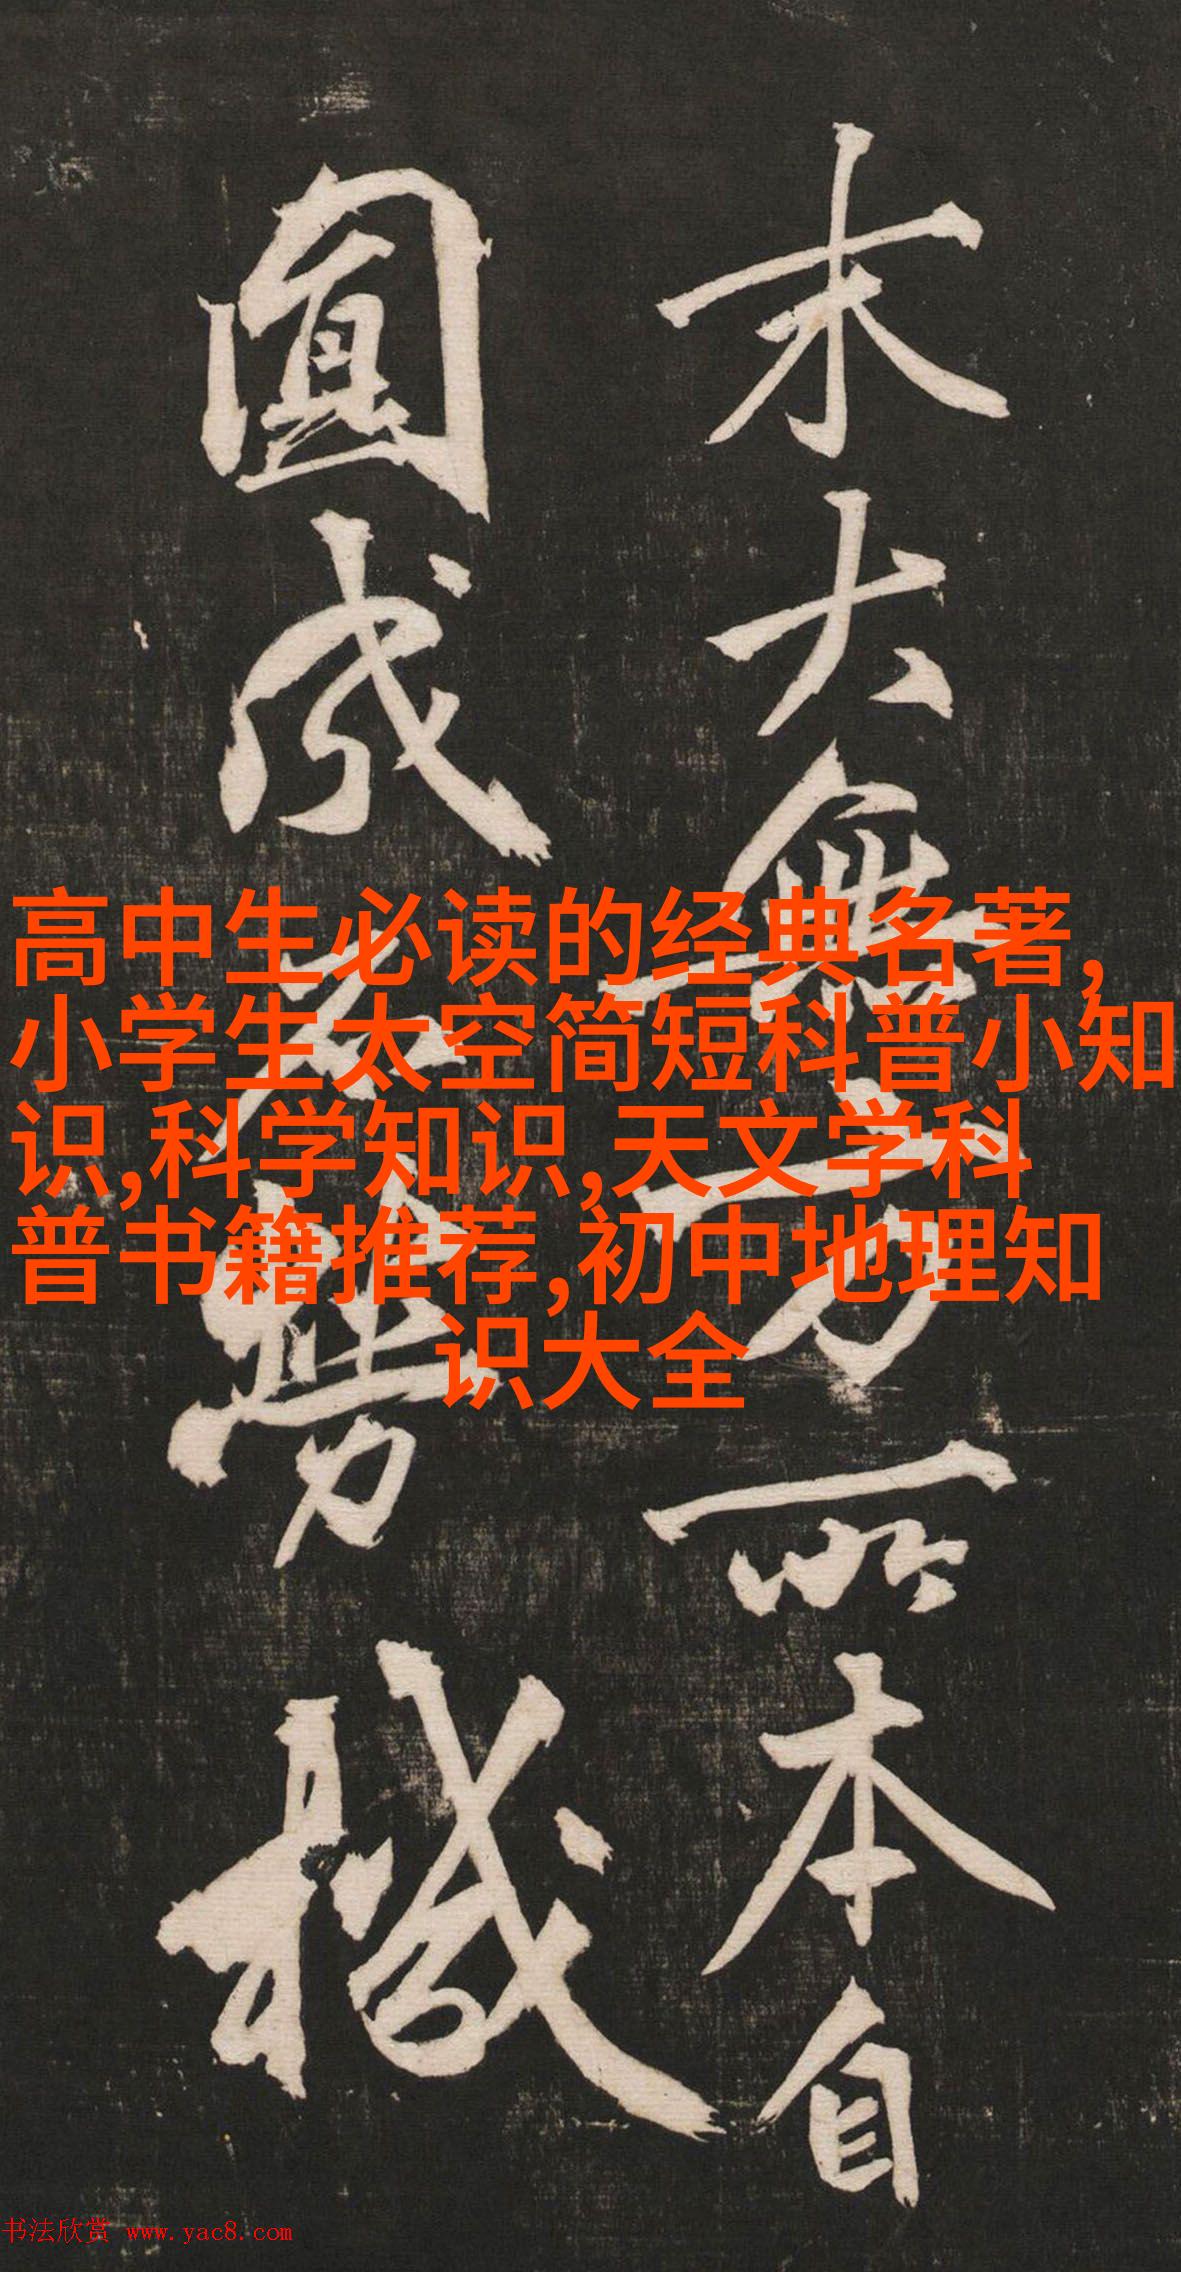 末大無方所本自
圓成不勞機
高中生必读的经典名著,
小学生太空简短科普小知
识,科学知识,天文学科
普书籍推荐,初中地理知
识大全
书法欣赏 www.yac8.com